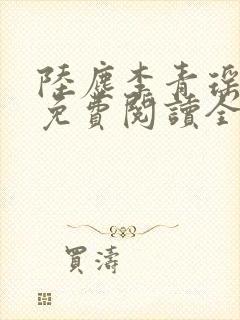 陸塵李青瑤
免費閱讀全
買濤